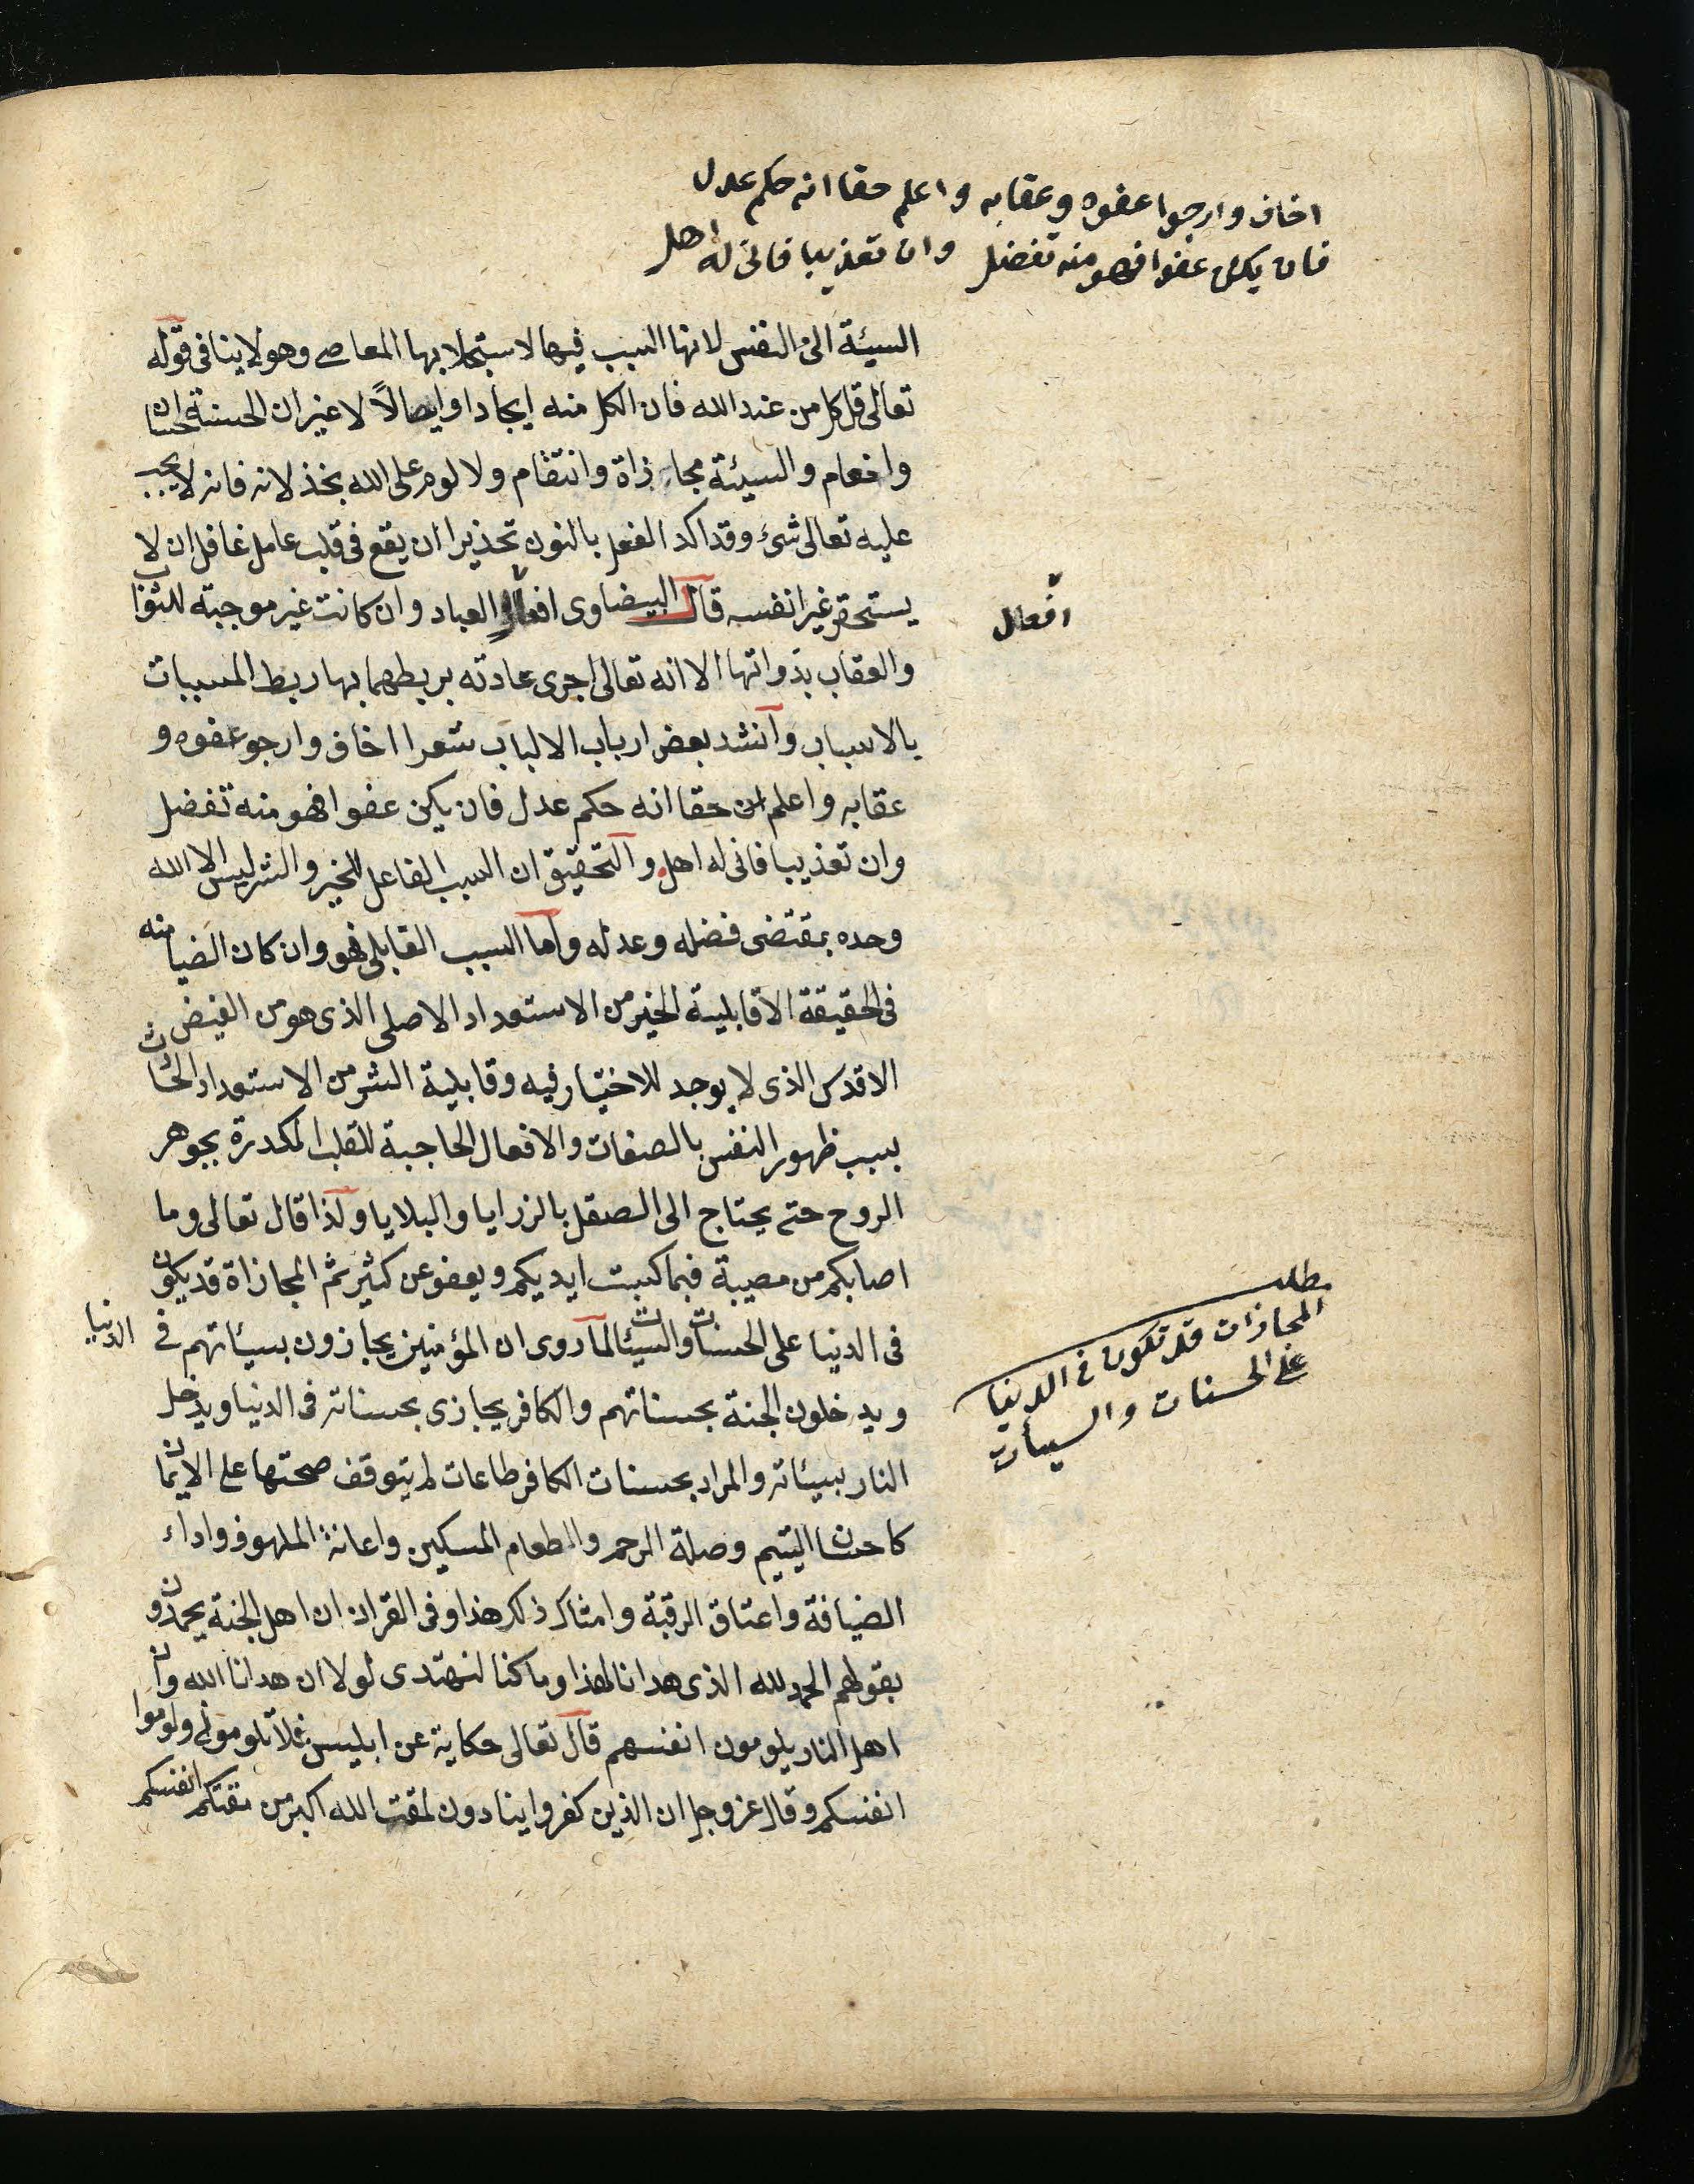 اخاف وارجوا عفوه وعقابه واعلم حقا انه حكم عدل
فان يكن عفوا فهو منه تفضل وان تعذيبا فانى له اهل
السيئة الى النفس لانها السبب فيها لاستجلابها المعاصى وهو لا ينافى قوله
تعالى قل كل من عند الله فان الكل منه ايجادا وايصالاً لا غير ان الحسنة احسان
وانعام والسيئة مجازاة وانتقام ولا لوم على الله بخذلانه فانه لا يجب
عليه تعالى شئ وقد اكد الفعل بالنون تحذيرا ان يقع فى قلب عامل غافل ان لا
يستحق غير انفسه قال البيضاوى افعال العباد وان كانت غير موجبته للثواب
افعال
والعقاب بذواتها الا انه تعالى اجرى عادته بربطهما بها ربط المسببات
بالاسباب وانشد بعض ارباب الالباب شعرا اخاف وارجو عفوه و
عقابه واعلم ان حقا انه حكم عدل فان يكن عفوا فهو منه تفضل
وان تعذيبا فانى له اهل والتحقيق ان السبب الفاعل للخير والشر ليس الا الله
وحده بمقتضى فضله وعدله واما السبب القابلى فهو وان كان ايضا منه
فى الحقيقة الا قابلية الخير من الاستعداد الاصلى الذى هو من الفيض
الاقدس الذى لا يوجد للاختيار فيه وقابلية الشر من الاستعداد الحادث
بسبب ظهور النفس بالصفات والافعال الحاجبة للقلب المكدرة بجوهر
الروح حتى يحتاج الى الصقل بالزرايا والبلايا ولذا قال تعالى وما
اصابكم من مصيبة فبما كسبت ايديكم ويعفو عن كثير ثم المجازاة قد يكون
فى الدنيا على الحسنات والسيئات لما روى ان المؤمنين يجازون بسيئاتهم فى الدنيا
مطلب
المجازات قد تكون فى الدنيا
على الحسنات والسيأت
ويدخلون الجنة بحسناتهم والكافر يجازى بحسناته فى الدنيا ويدخل
النار بسيئاته والمراد بحسنات الكافر طاعات لم يتوقف صحتها على الايمان
كاحسان اليتيم وصلة الرحم والطعام المسكين واعانة الملهوف واداء
الضيافة واعتاق الرقبة وامثال ذلك هذا وفى القران ان اهل الجنة يحمدون
بقولهم الحمد لله الذى هدانا لهذا وما كنا لنهتدى لولا ان هدانا الله وان
اهل النار يلومون انفسهم قال تعالى حكاية عن ابليس فلا تلومونى ولوموا
انفسكم وقال عز وجل ان الذين كفروا ينادون لمقت الله اكبر من مقتكم انفسكم